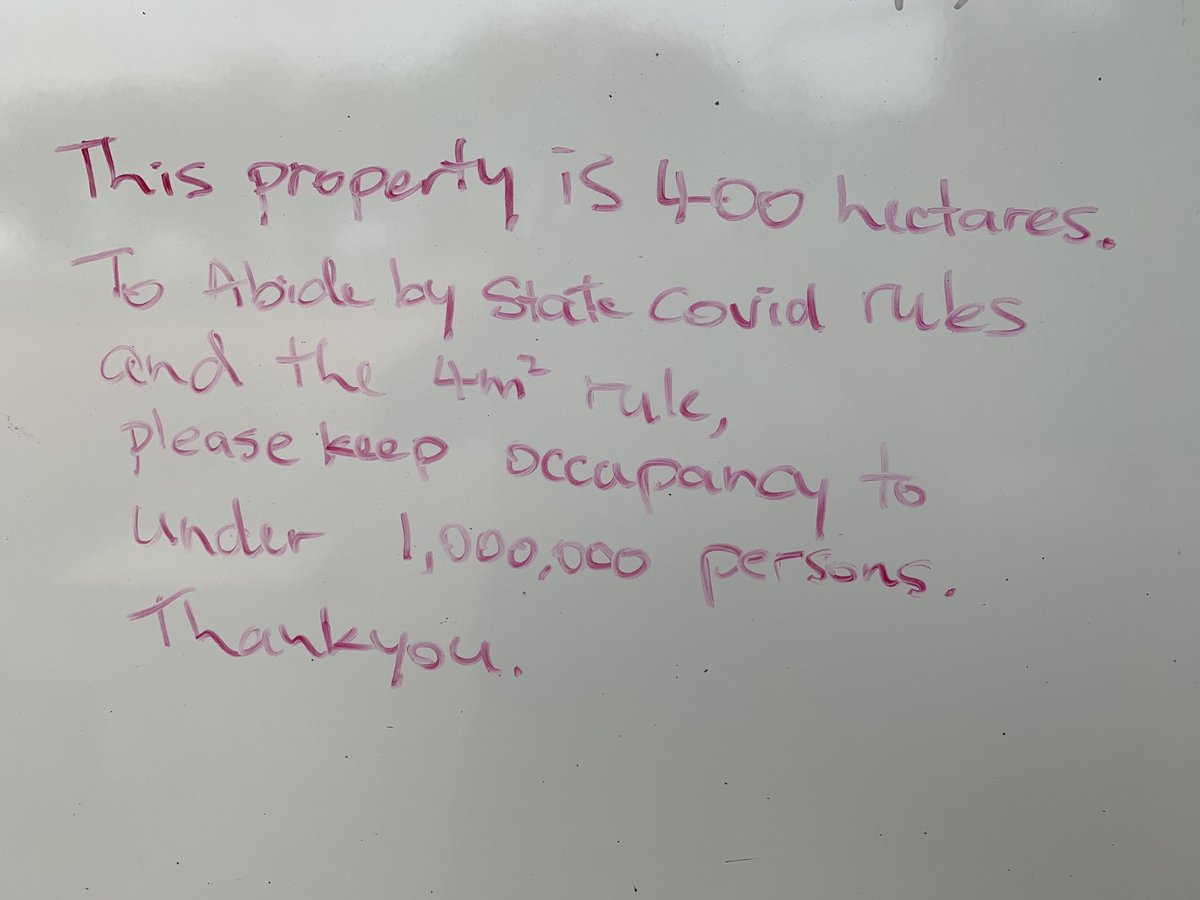 This property is 400 hectares.
To Abide by State Covid rules
and the 4m² rule,
please keep occupancy to
under 1,000,000 persons.
Thankyou.